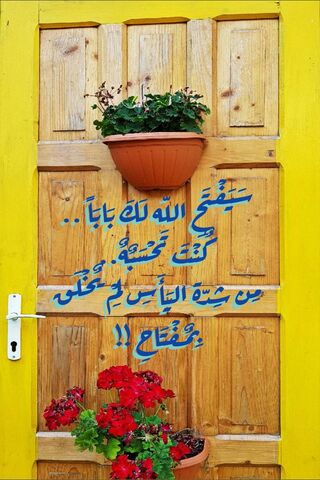 سَيَفْتَح اللّه لَكَ بَابَاً..
كُنْتَ تَحْسَبُهُ.
مِن شِدّة اليَأسِ لمْ يُخْلَق
بِمُفْتَاحِ !!